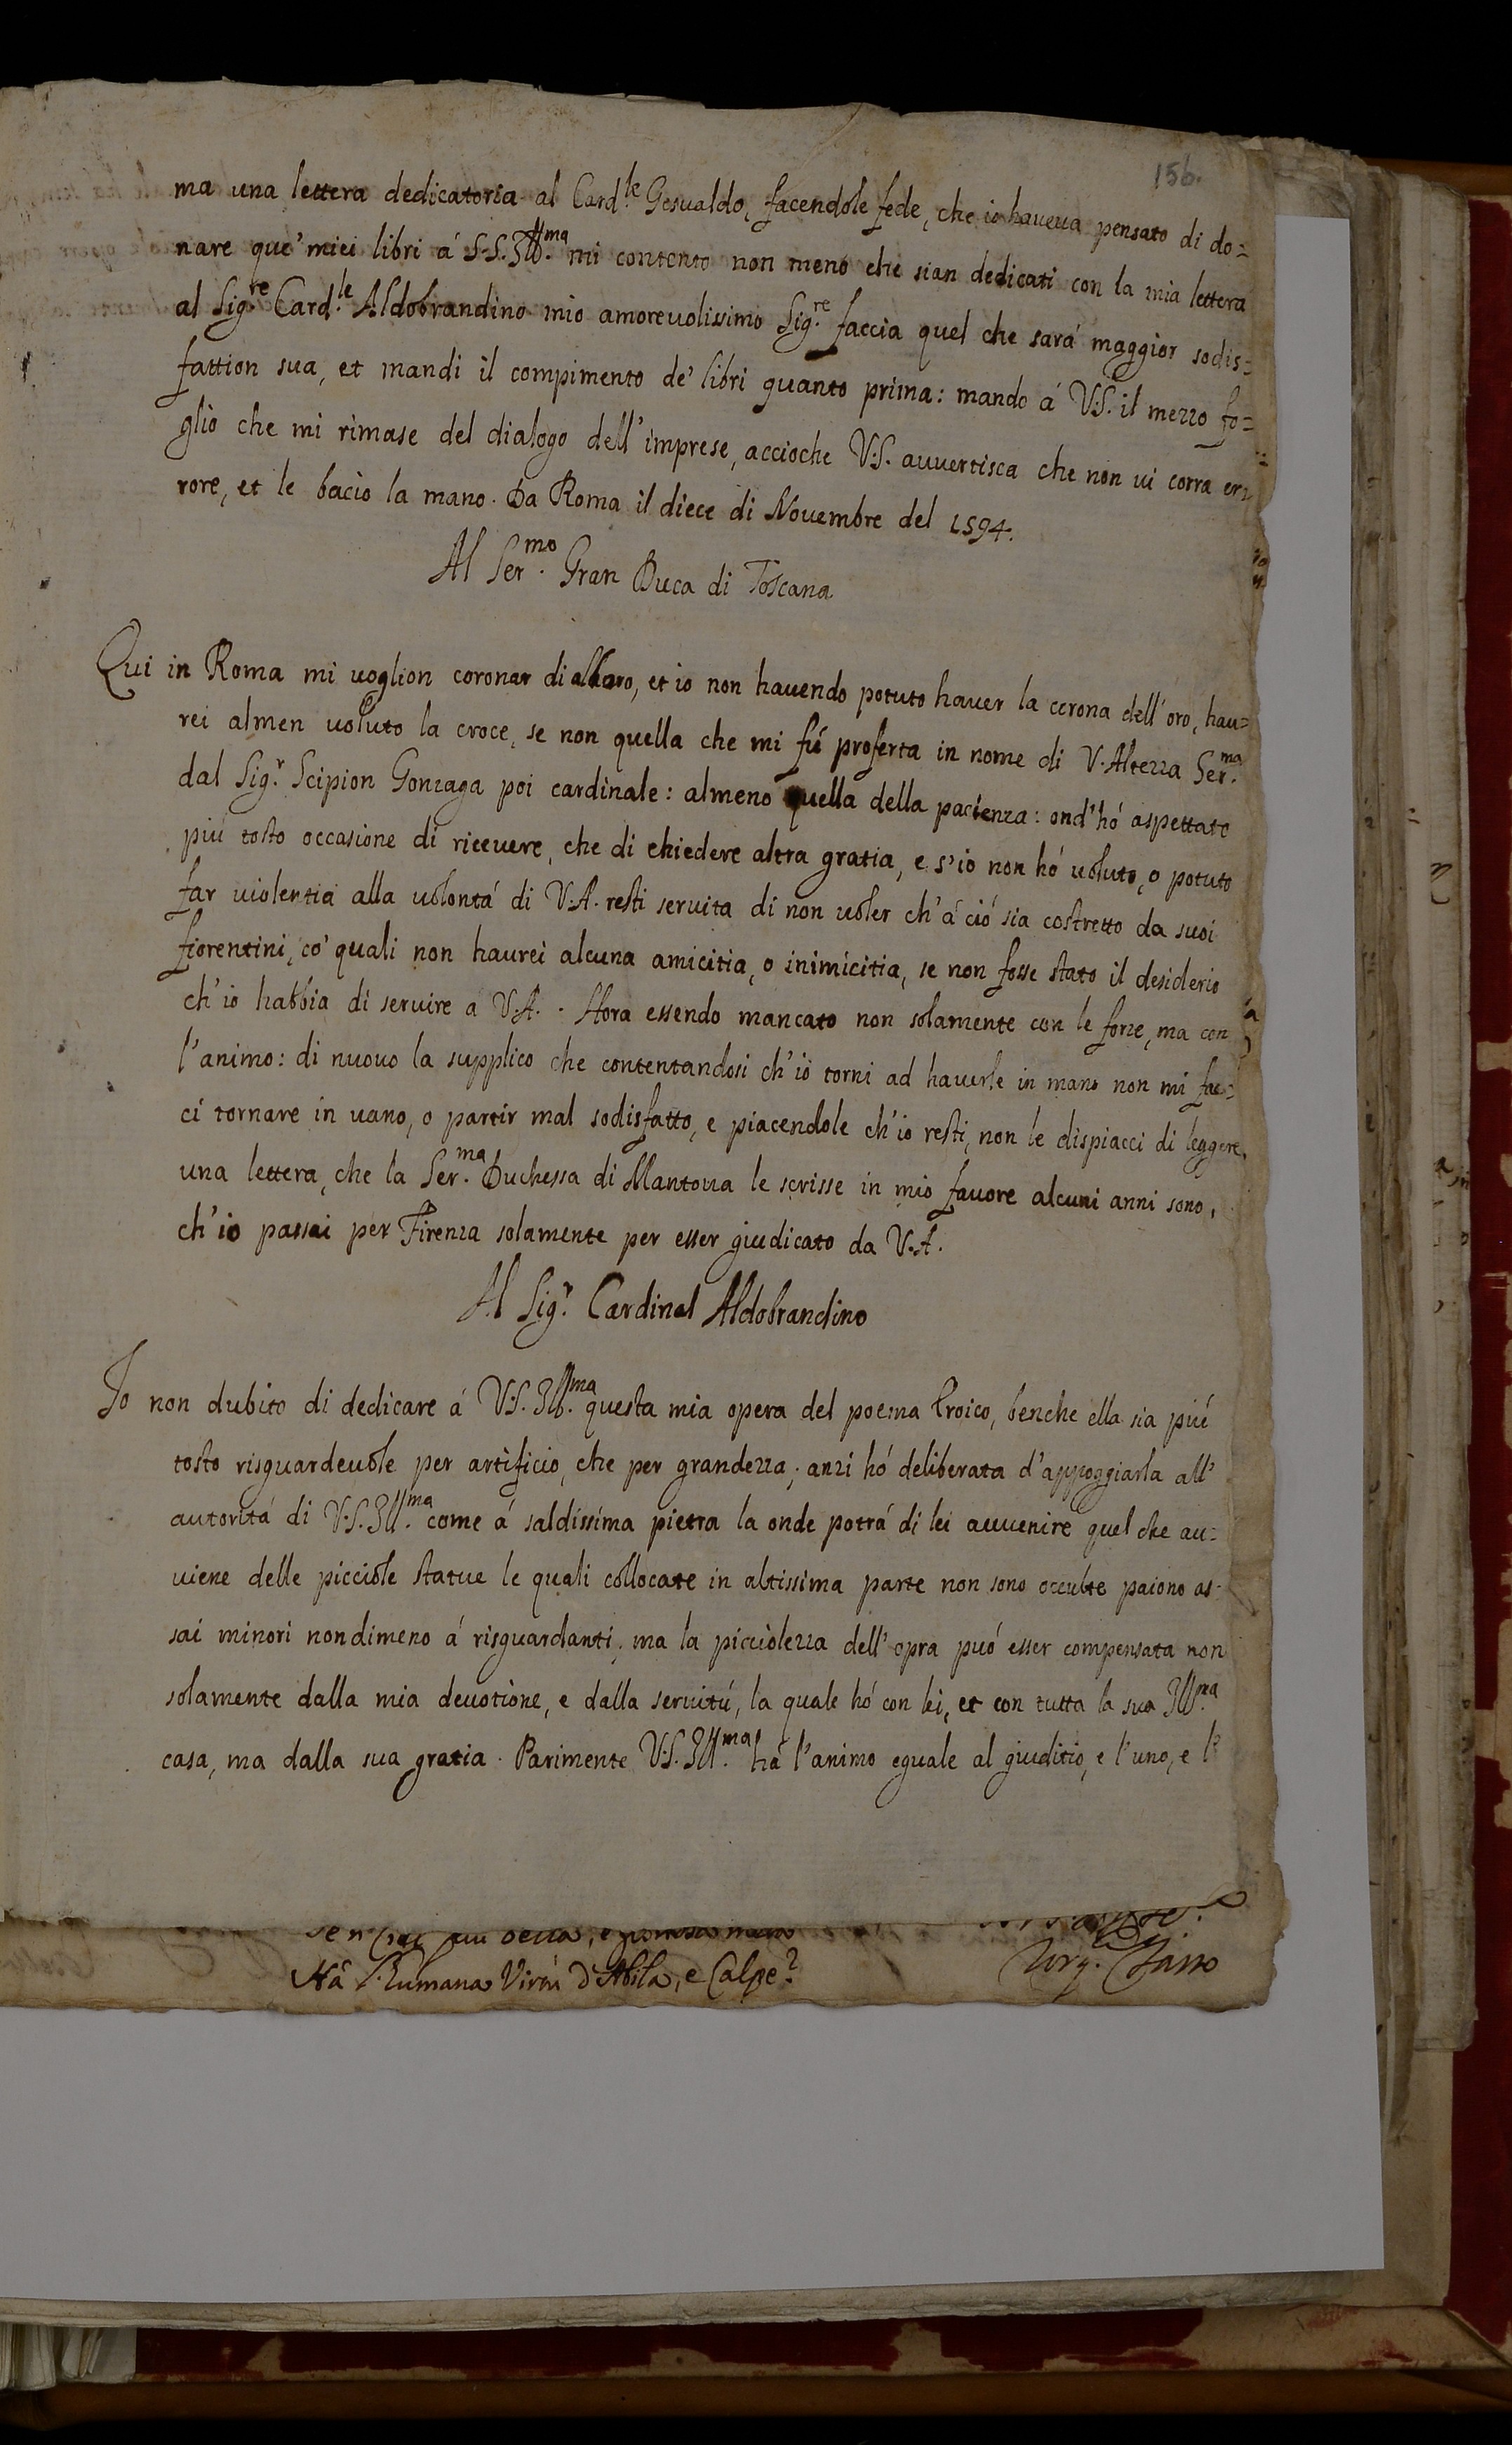 156.
ma una lettera dedicatoria al Card.le Gesualdo, facendole fede, che io haueua pensato di do=
nare que' miei libri á S.S. Ill.ma mi contento non meno che sian dedicati con la mia lettera
al Sig.re Card.le Aldobrandino mio amoreuolissimo Sig.re faccia quel che sará maggior sodis=
fattion sua, et mandi il compimento de' libri quanto prima: mando á V.S. il mezzo fo=
glio che mi rimase del dialogo dell'imprese, accioche V.S. auuertisca che non ui corra er=
rore, et le bacio la mano. Da Roma il diece di Nouembre del 1594.
Al Ser.mo Gran Duca di Toscana
Qui in Roma mi uoglion coronar di alloro, et io non hauendo potuto hauer la corona dell'oro, hau=
rei almen uoluto la croce, se non quella che mi fú proferta in nome di V. Altezza Ser.ma
dal Sig.r Scipion Gonzaga poi cardinale: almeno quella della pacienza: ond'hó aspettato
piú tosto occasione di riceuere, che di chiedere altra gratia, e s'io non hó uoluto, o potuto
far uiolentia alla uolontá di V.A. resti seruita di non uoler ch'á ció sia costretto da suoi
fiorentini, co' quali non haurei alcuna amicitia, o inimicitia, se non fosse stato il desiderio
ch'io habbia di seruire a V.A. . Hora essendo mancato non solamente con le forze, ma con
l'animo: di nuouo la supplico che contentandosi ch'io torni ad hauerle in mano non mi fac=
ci tornare in uano, o partir mal sodisfatto, e piacendole ch'io resti, non le dispiacci di leggere
una lettera, che la Ser.ma Duchessa di Mantoua le scrisse in mio fauore alcuni anni sono,
ch'io passai per Firenza solamente per esser giudicato da V.A.
Al Sig.r Cardinal Aldobrandino
Io non dubito di dedicare á V.S. Ill.ma questa mia opera del poema Eroico, benche ella sia piú
tosto risguardeuole per artificio, che per grandezza; anzi hó deliberata d'appoggiarla all'
autoritá di V.S. Ill.ma come á saldissima pietra la onde potrá di lei auuenire quel che au=
uiene delle picciole statue le quali collocate in altissima parte non sono occulte paiono as=
sai minori nondimeno á risguardanti, ma la picciolezza dell'opra puó esser compensata non
solamente dalla mia deuotione, e dalla seruitú, la quale hó con lei, et con tutta la sua Ill.ma
casa, ma dalla sua gratia. Parimente V.S. Ill.ma há l'animo eguale al giuditio, e l'uno, e l'
Há l'humana Virtù d'Abila, e Calpe?
Torq. Tasso